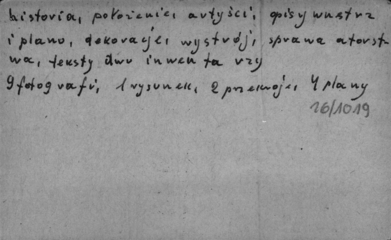 historia, położenie, artyści, opisy wnętrz
i planu, dekoracje, wystrój, sprawa autorst
wa, teksty dwu inwenta rzy
9 fotografii, 1 rysunek, 2 przekroje, 4 plany
26/1019